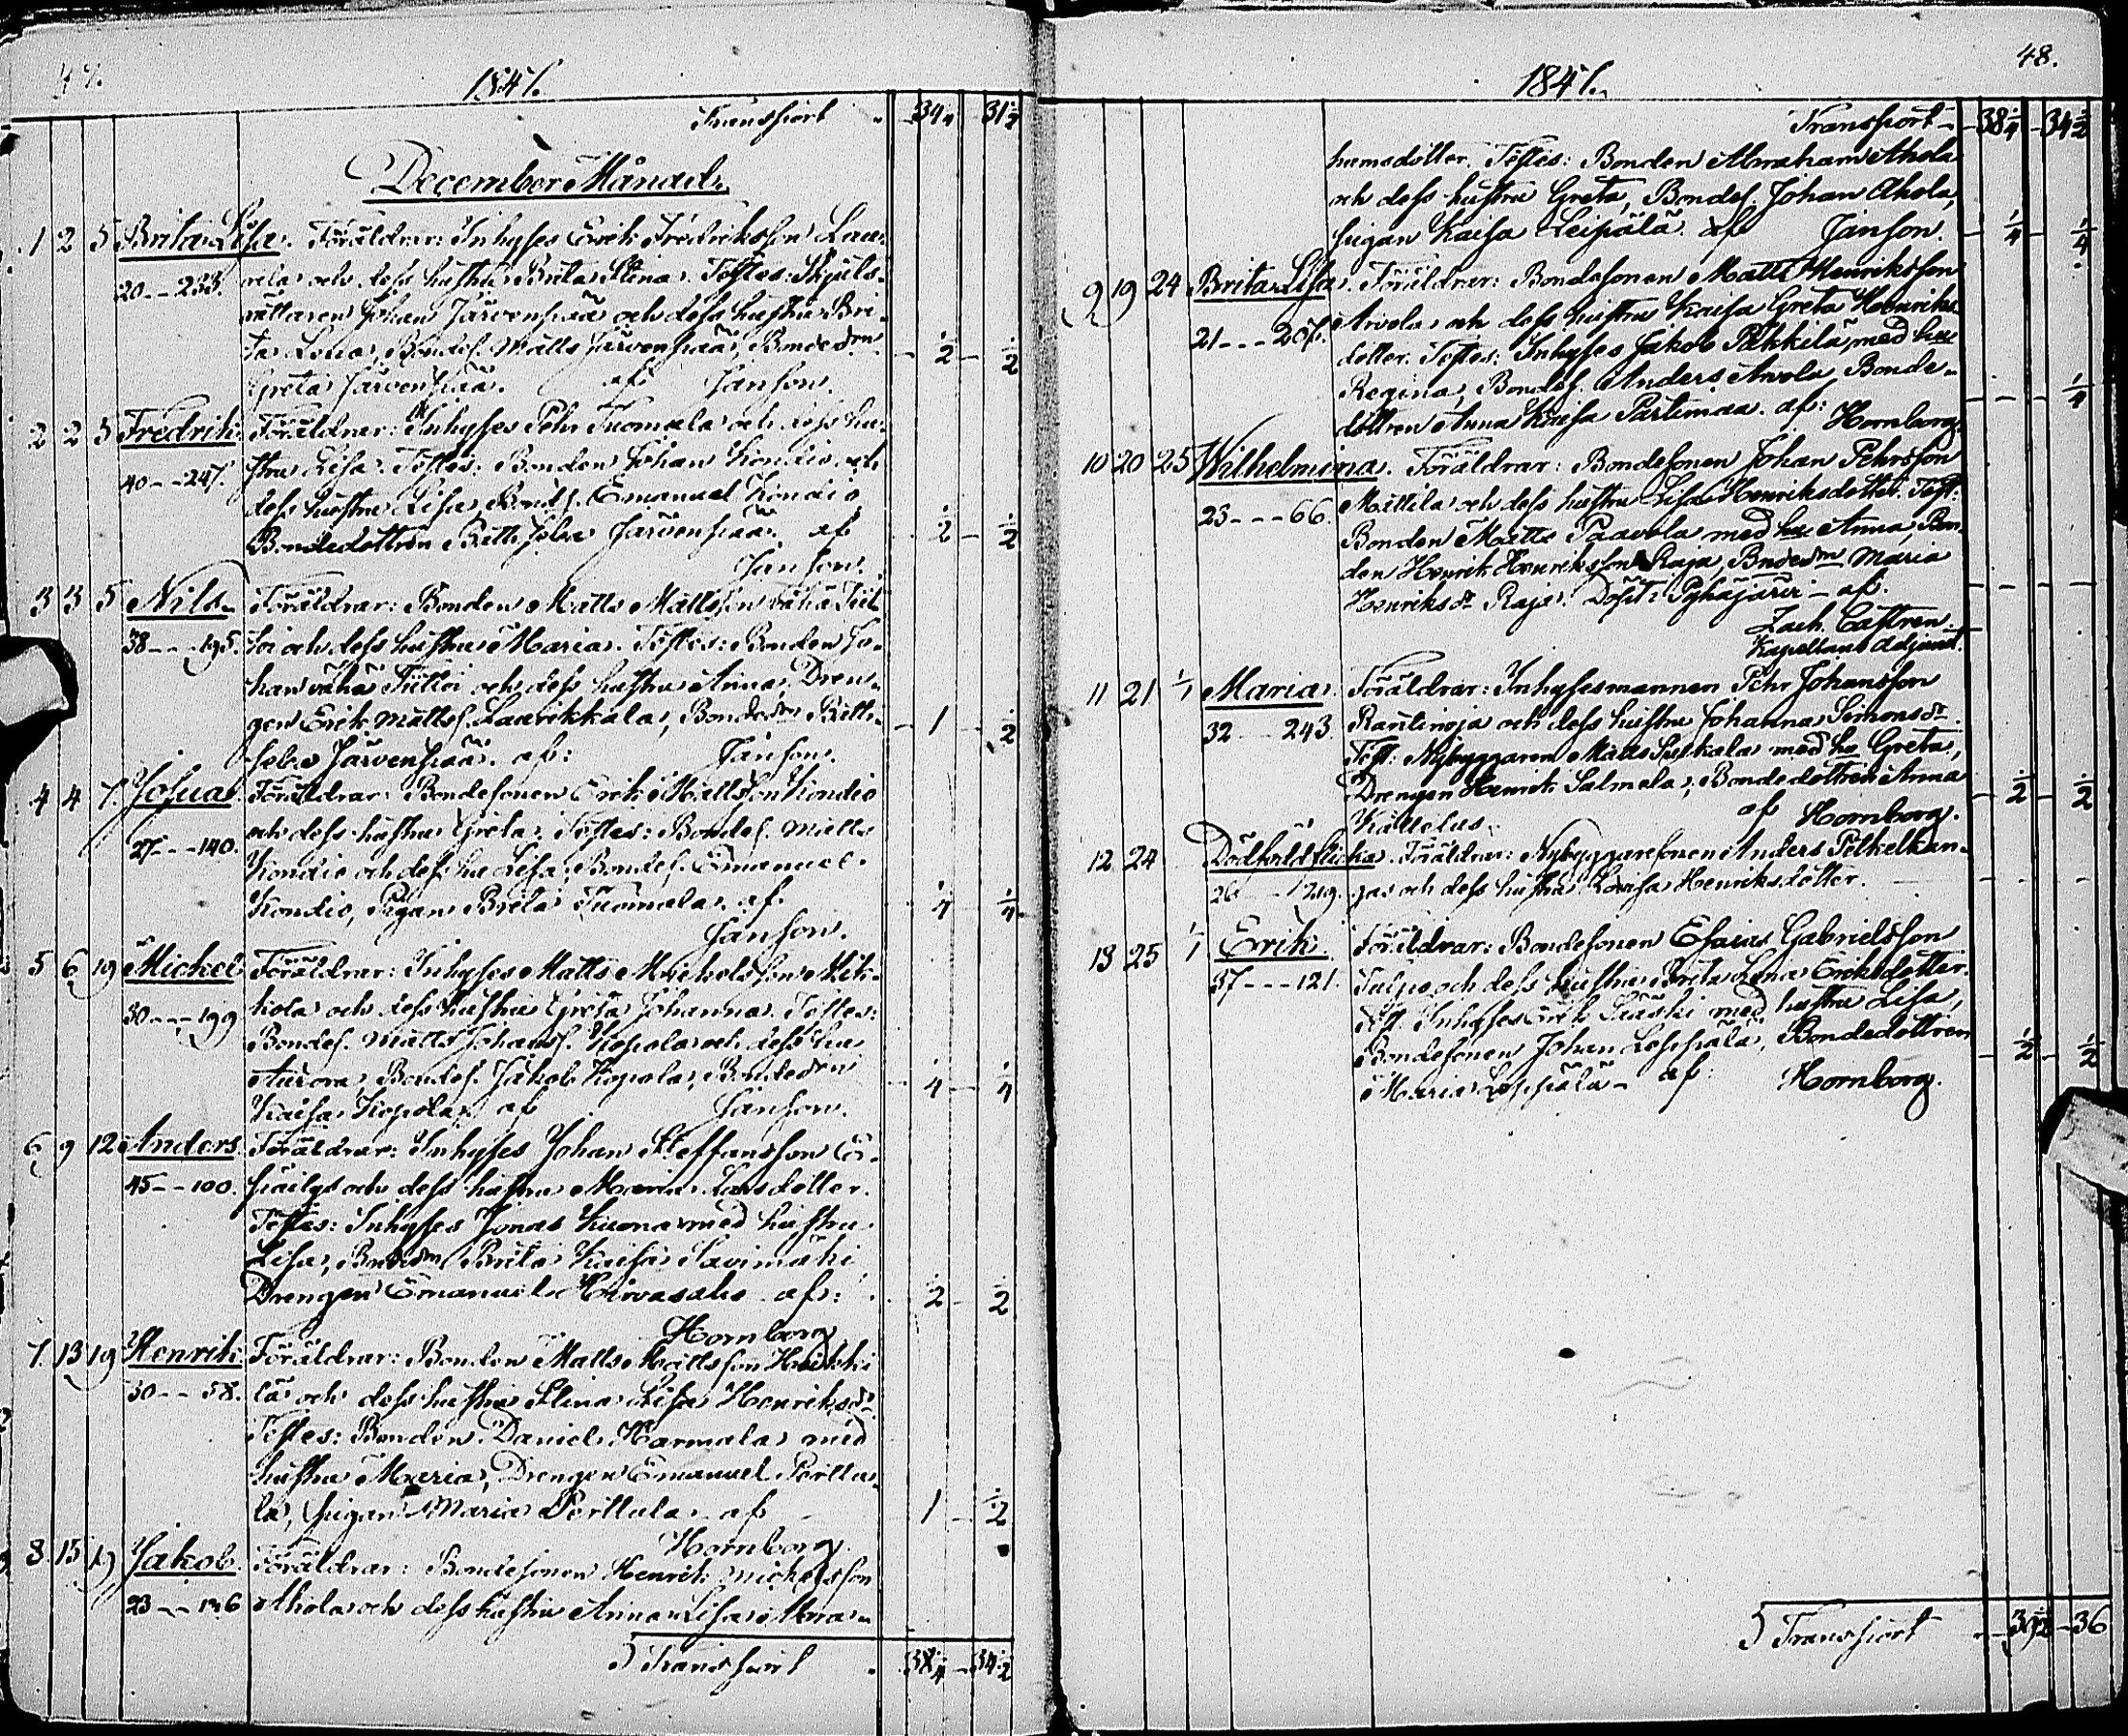 47.
1847.
Transport 34¼ 31½
December Månad.
1 2 5 Brita Lisa. Föräldrar: Inhyses Erik Fredriksson Lau-
20 - - 233. rela och dess hustru Brita Stina. Testes: Skjuts-
rättaren Johan Järvenpää och dess hustru Bri-
ta Lena, Bondes. Matts Järvenpää, Bondedrn ½ ½
Greta Järvenpää. af Janson.
2 2 5 Fredrik. Föräldrar: Inhyses Pehr Tuomala och dess hu-
40 - - 247. stru Lisa. Testes: Bonden Johan Kondio och
dess hustru Lisa, Bonds. Emanuel Kondio
Bondedottren Britt Järvenpää. af ½ ½
Janson.
3 3 5 Nils. Föräldrar: Bonden Matts Mattsson vähä Tiit-
38 - - - 195. toi och dess hustru Maria. Testes: Bonden Jo-
han vähä Tiittoi och dess hustru Anna, Dren-
gen Erik Mattss. Laurikkala, Bondedrn Britt- 1 ½
Järvenpää. af: Janson.
4 4 7. Josua. Föräldrar: Bondesonen Erik Mattsson Kondio
27 - - - 140. och dess hustru Greta. Testes: Bondes. Matts
Kondio och dess hu Lisa, Bondes. Emanuel
Kondio, Pigan Brita Tuomala. af ¼ ¼
Janson.
5 6 19 Mickel Föräldrar: Inhyses Matts Michelsson Mik-
30 - - - 199 kola och dess hustru Greta Johanna. Testes:
Bondes. Matts Johanss. Kopola och dess hu
Aurora, Bondes. Jakob Kopola, Bondedrn ¼ ¼
Kaisa Kopola. af Janson.
6 9 12 Anders. Föräldrar: Inhyses Johan Steffansson
45 - - 100. och dess hustru Maria Larsdotter.
Testes: Inhyses Jonas Kuona med hustru
Lisa, Bndedrn Brita Kaisa Savimäki
Drengen Emanuel Hirvasaho af: ½ ½
Hornborg
7. 13 19 Henrik. Föräldrar: Bonden Matts Mattsson Heikki
30 - - 58. lä och dess hustru Stina Lisa Henriksdr
Testes: Bonden Daniel Harmala med
hustru Maria, Drengen Emanuel Perttu-
la, pigan Maria Perttula. af 1 ½
Hornborg.
8. 15 19 Jakob. Föräldrar: Bondesonen Henrik Michelsson
23 - - 136 Ahola och dess hustru Anna Lisa Abra-
Transport 38¼ 34½
48.
1847.
Transport 38¼ 34½
hamsdotter. Testes: Bonden Abraham Ahola
och dess hustru Greta, Bondes. Johan Ahola,
pigan Kaisa Leipälä. af Janson. ¼ ¼
9 19 24 Brita Lisa. Föräldrar: Bondesonen Matts Henriksson
21 - - - 207. Arvola och dess hustru Kaisa Greta Henriks
dotter. Testes: Inhyses Jakob Pukkilä, med hu
Regina, Bondes. Anders Arvola, Bonde- ¼
dottren Anna Kaisa Partimaa. af: Hornborg.
10 20 25 Wilhelmina. Föräldrar: Bondesonen Johan Pehrsson
23 - - - 66. Mattila och dess hustru Lisa Henriksdotter. Test:
Bonden Matts Paavola med hu Anna, Bon-
den Henrik Henriksson Raja, Bndedrn Maria
Henriksdr Raja. Döpt i Pyhäjärvi - af.
Zach. Castren.
Kapellans adjunct.
11 21 1/1 Maria. Föräldrar: Inhysesmannen Pehr Johansson
32 - - 243. Rautinoja och dess hustru Johanna Simonsdr
Test: Nybyggaren Matts med hu Greta,
Drengen Henrik Salmela, Bondedottren Anna ½ ½
Kattelus. af Hornborg.
12 24 Dödfödd flicka. Föräldrar: Nybyggaresonen Anders Pelkekan-
26 - - 219. gas och dess hustru Lovisa Henriksdotter.
13 25 1/1 Erik. Föräldrar: Bondesonen Esaias Gabrielsson
37 - - - 121. Tulpo och dess hustru Brita Lena Eriksdotter.
Test. Inhyses Erik Sääski med hustru Lisa,
Bondesonen Johan Leppälä, Bondedottren ½ ½
Maria Leppälä - af: Hornborg.
Transport 39½ 36